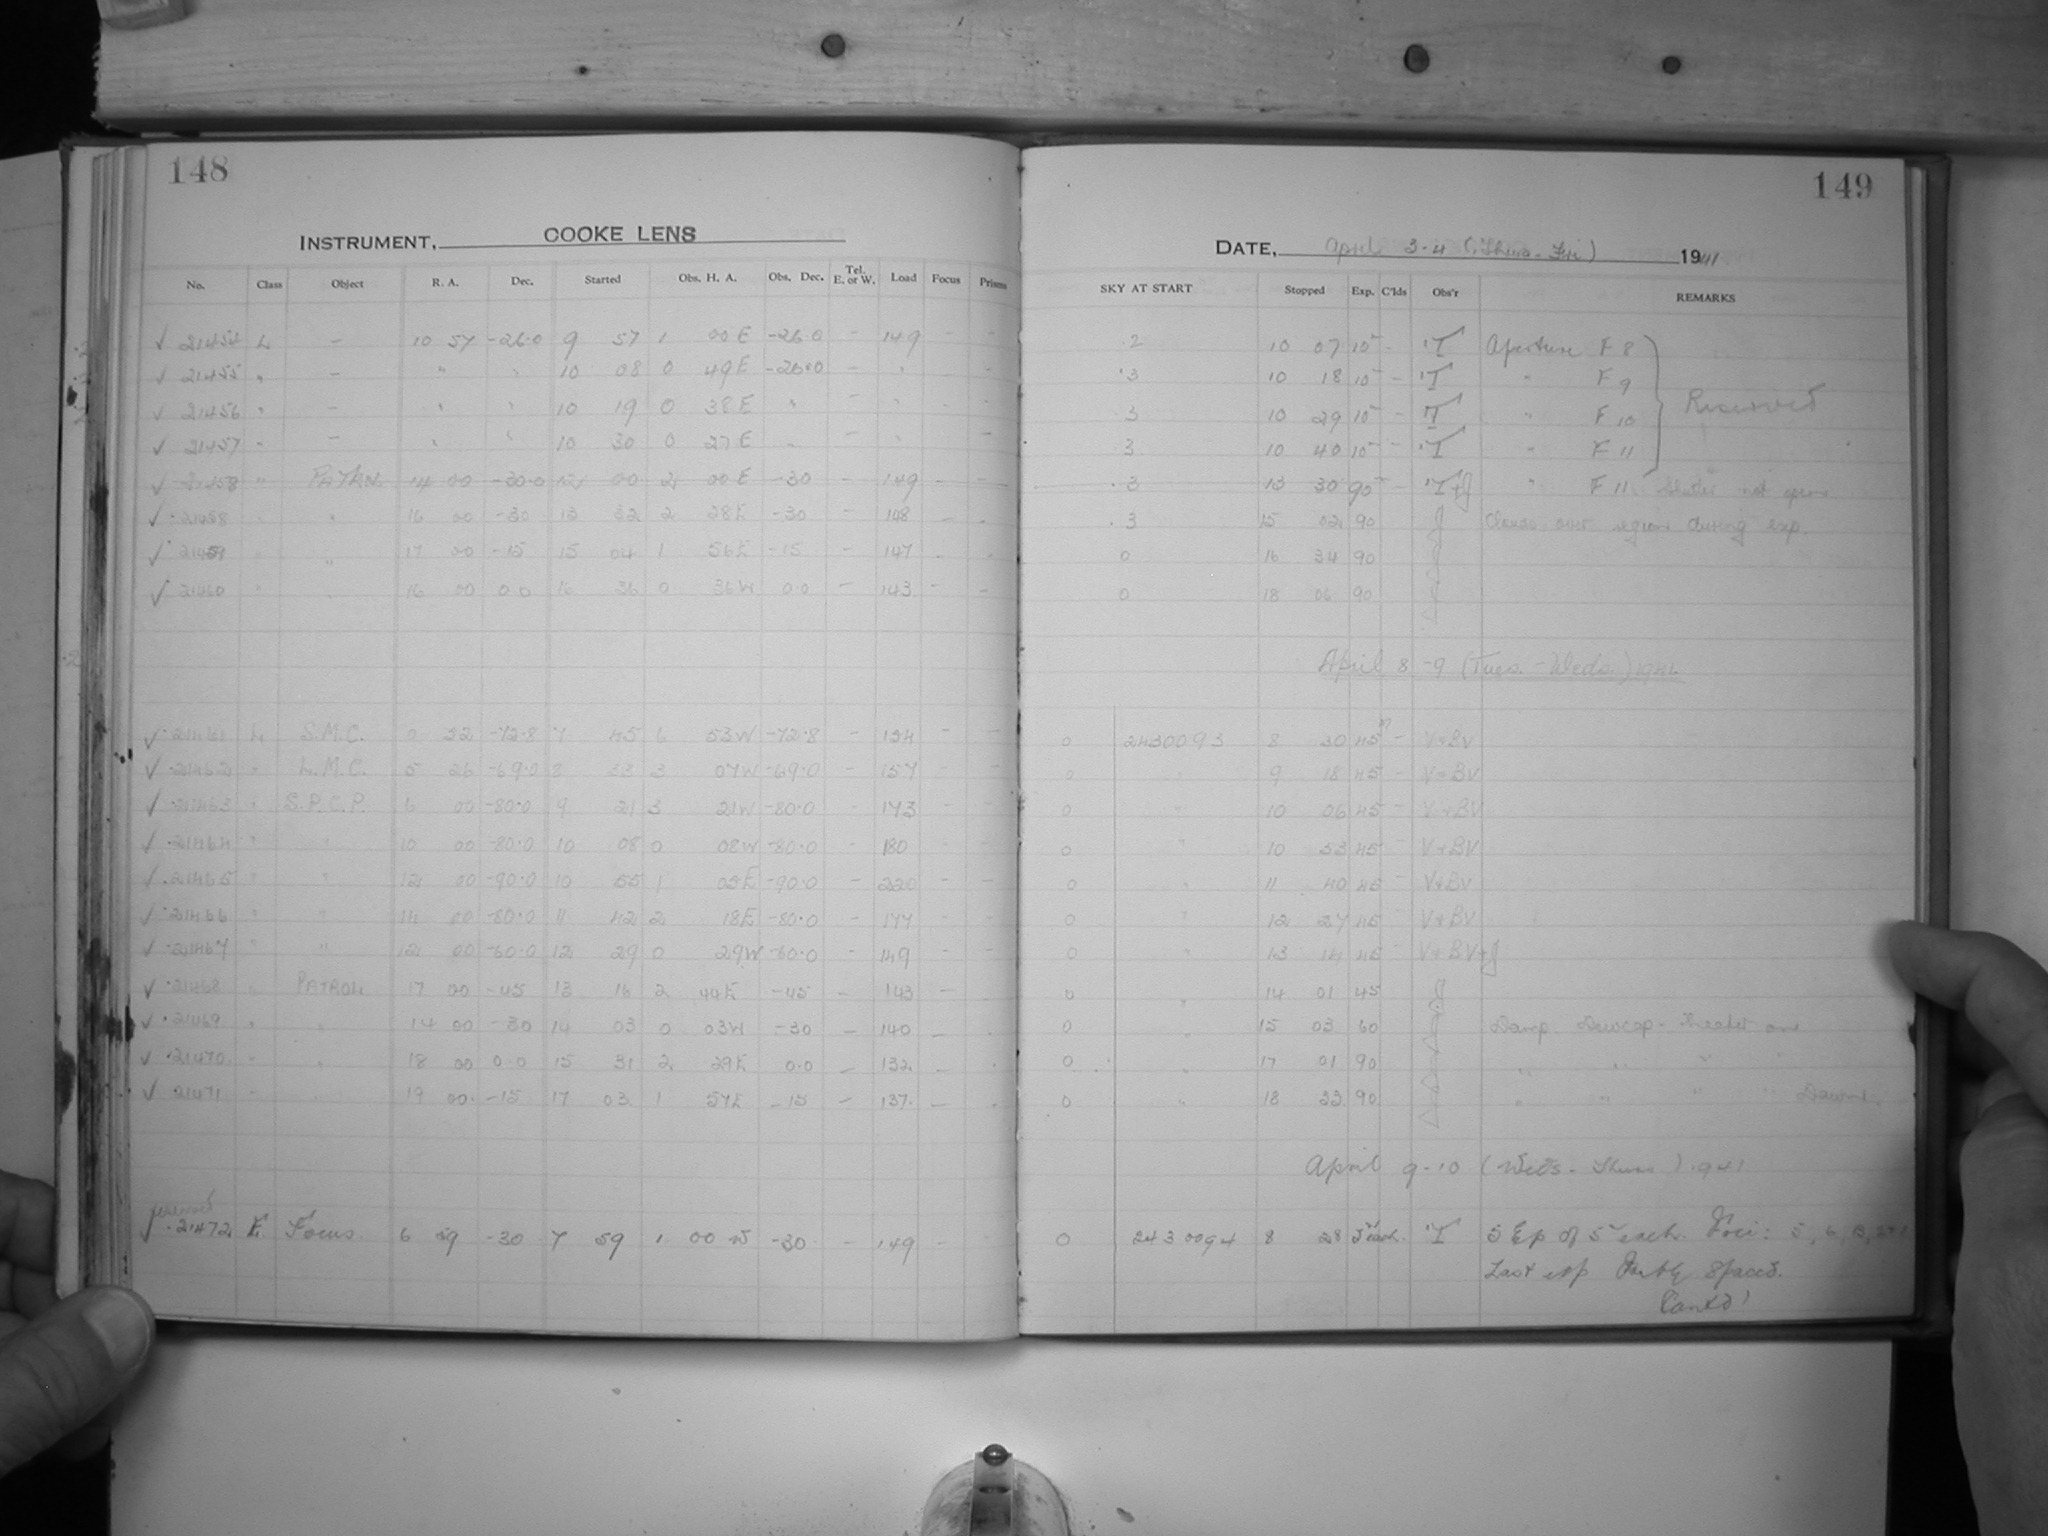 148
INSTRUMENT, COOKE LENS
No. Class Object R. A. Dec. Started Obs. H. A. Obs. Dec. Tel. E. or W. Load Focus Prisms
✓ 21454 L – 10 57 -26.0 9 57 1 00 E -26.0 – 149 – –
✓ 21455 " – " " 10 08 0 49 E -26.0 – " – –
✓ 21456 " – " " 10 19 0 38 E " – " – –
✓ 21457 " – " " 10 30 0 27 E " – " – –
✓ 21458 " PATROL 14 00 -30.0 12 00 2 00 E -30 – 149 – –
✓ 21458 " " 16 00 -30 13 32 2 28 E -30 – 148 – –
✓ 21459 " " 17 00 -15 15 04 1 56 E -15 – 147 – –
✓ 21460 " " 16 00 0.0 16 36 0 36 W 0.0 – 143 – –
✓ 21461 L S.M.C. 0 52 -72.8 7 45 6 53 W -72.8 – 134 – –
✓ 21462 " L.M.C. 5 26 -69.0 8 33 3 07 W -69.0 – 157 – –
✓ 21463 " S.P.C.P. 6 00 -80.0 9 21 3 21 W -80.0 – 173 – –
✓ 21464 " " 10 00 -80.0 10 08 0 08 W -80.0 – 180 – –
✓ 21465 " " 12 00 -90.0 10 55 1 05 E -90.0 – 220 – –
✓ 21466 " " 14 00 -80.0 11 42 2 18 E -80.0 – 177 – –
✓ 21467 " " 12 00 -60.0 12 29 0 29 W -60.0 – 149 – –
✓ 21468 " PATROL 17 00 -45 13 16 2 44 E -45 – 143 – –
✓ 21469 " " 14 00 -30 14 03 0 03 W -30 – 140 – –
✓ 21470 " " 18 00 0.0 15 31 2 29 E 0.0 – 132 – –
✓ 21471 " " 19 00 -15 17 03 1 57 E -15 – 137 – –
✓ 21472 E. Focus 6 59 -30 7 59 1 00 W -30 – 149 –
149
DATE, April 3-4 (Thurs - Fri) 1941
SKY AT START Stopped Exp. C'lds Obs'r REMARKS
.2 10 07 10 – T Aperture F 8
.3 10 18 10 – T " F 9
.3 10 29 10 – T " F 10
Reserved
3 10 40 10 – T " F 11
.3 13 30 90 – T+J " F 11. Shutter not open
.3 15 02 90 J Clouds over region during exp.
0 16 34 90
0 18 06 90
April 8-9 (Tues. - Weds.) 1941
0 2430093 8 30 45 – V+BV
0 " 9 18 45 – V+BV
0 " 10 06 45 – V+BV
0 " 10 53 45 – V+BV
0 " 11 40 45 – V+BV
0 " 12 27 45 – V+BV
0 " 13 14 45 – V+BV+J
0 " 14 01 45 J
0 " 15 03 60 Damp. Dewcap-heater on
0 " 17 01 90 " " " "
0 " 18 33 90 " " " " Dawn.
April 9-10 (Weds - Thurs) 1941
0 2430094 8 28 5 each. T 5 Exp of 5 each. Foci: 5, 6,
Last exp Partly Spaced.
Contd